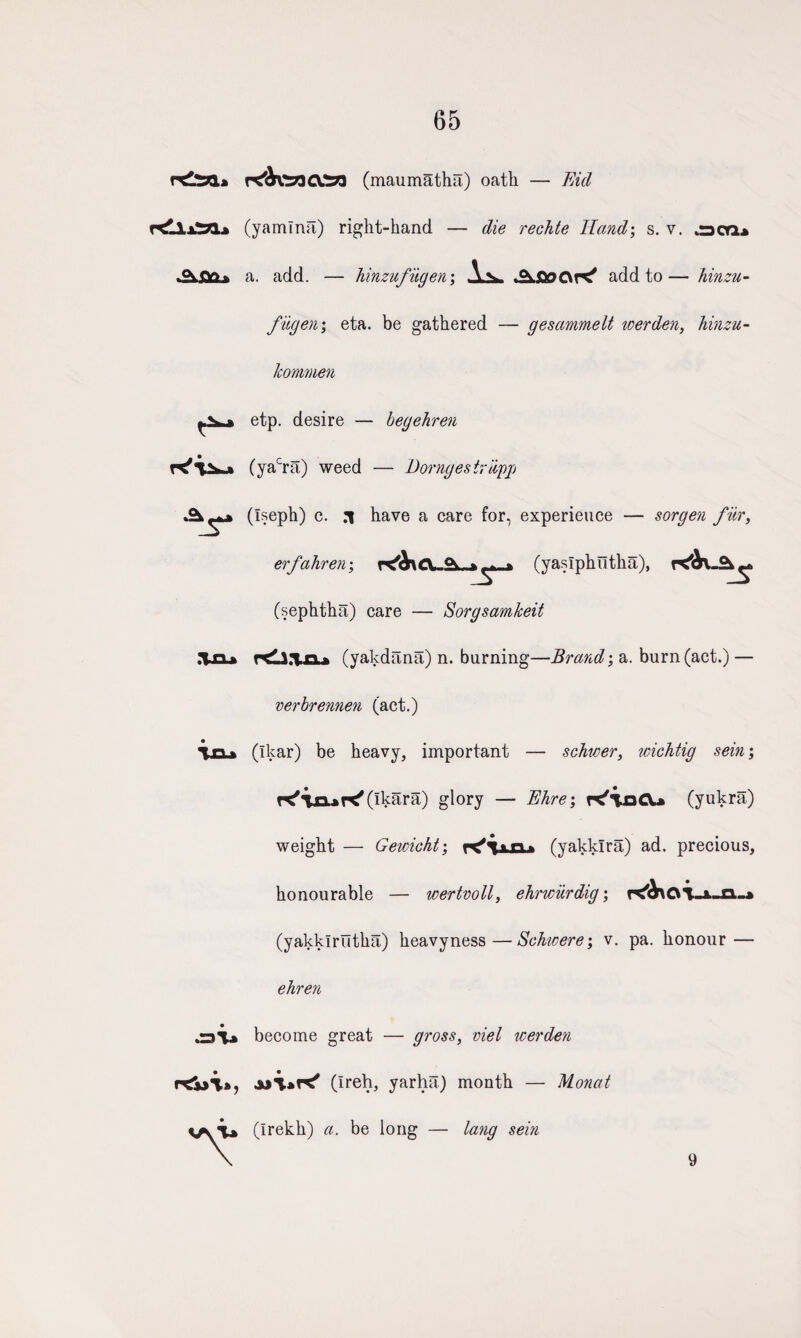 65
ܝܡܐ ܡܘܡܬܐ (maumāthā) oath — Eid
ܝܡܝܢܐ (yamīnā) right-hand — die rechte Hand; s. v. ܝܗܒ
ܝܣܦ a. add. — hinzufügen; ܐܘܣܦ ܥܠ add to — hinzu-
fügen; eta. be gathered — gesammelt werden, hinzu-
kommen
ܝܥܢ etp. desire — begehren
ܝܥܪܐ (yaᶜrā) weed — Dorngestrüpp
ܝܨܦ (īṣeph) c. ܕ have a care for, experience — sorgen für,
erfahren; ܝܨܝܦܘܬܐ (yaṣīphūthā), ܨܦܬܐ
(ṣephthā) care — Sorgsamkeit
ܝܩܕ ܝܩܕܢܐ (yaḳdānā) n. burning—Brand; a. burn (act.) —
verbrennen (act.)
ܝܩܪ (īḳar) be heavy, important — schwer, wichtig sein;
ܐܝܩܪܐ (īḳārā) glory — Ehre; ܝܘܩܪܐ (yuḳrā)
weight — Gewicht; ܝܩܝܪܐ (yaḳḳīrā) ad. precious,
honourable — wertvoll, ehrwürdig; ܝܩܝܪܘܬܐ
(yaḳḳīrūthā) heavyness — Schwere; v. pa. honour —
ehren
ܝܪܒ become great — gross, viel werden
ܝܪܚܐ, ܐܝܪܚ (īreḥ, yarḥā) month — Monat
ܝܪܟ (īrekh) a. be long — lang sein
9